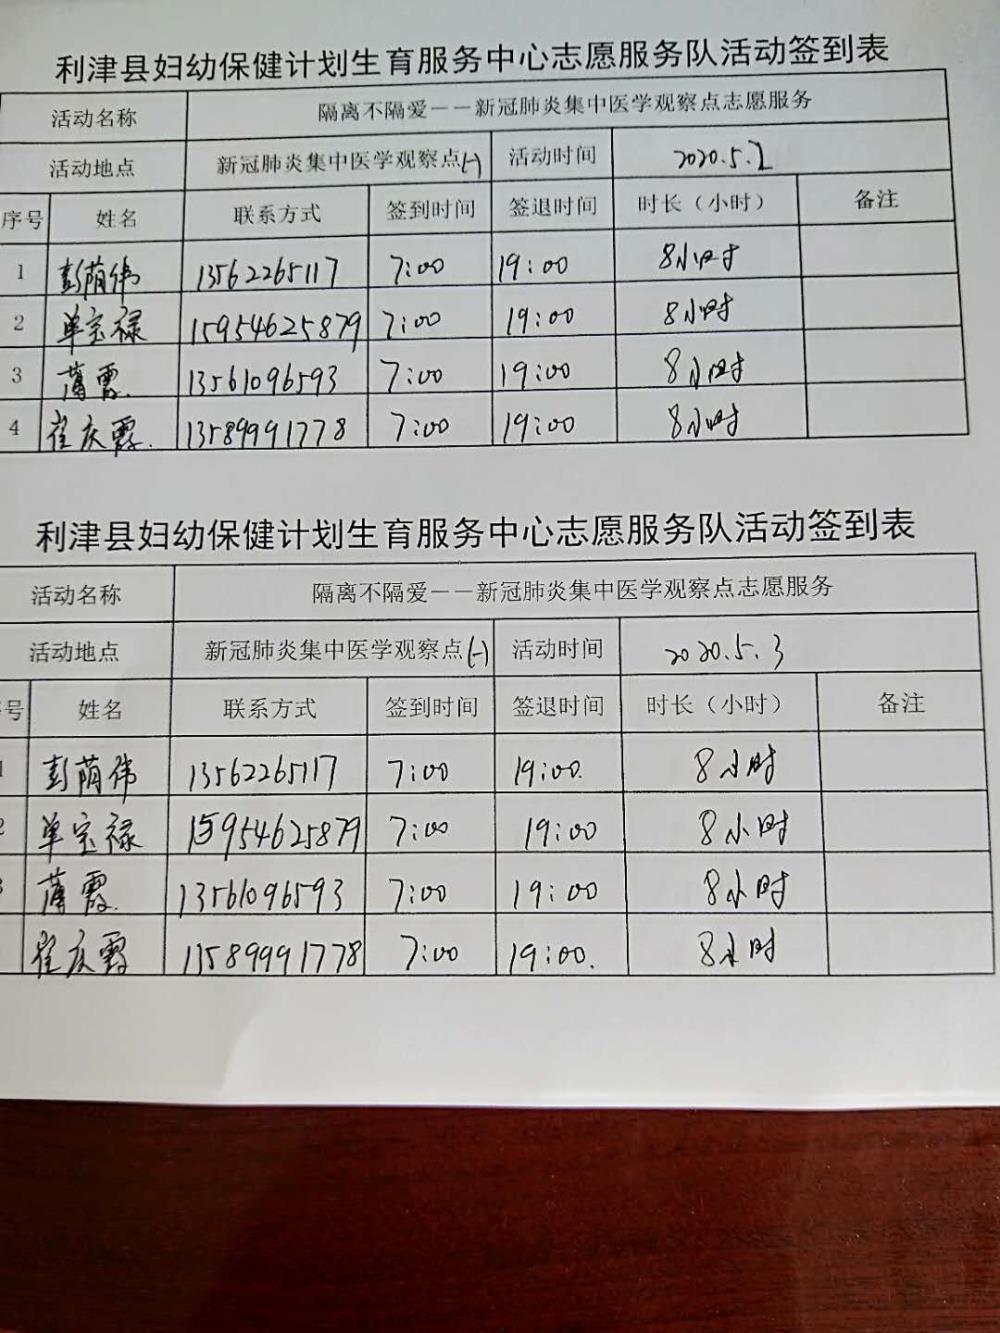 利津县妇幼保健计划生育服务中心志愿服务队活动签到表
活动名称 隔离不隔爱——新冠肺炎集中医学观察点志愿服务
活动地点 新冠肺炎集中医学观察点(一) 活动时间 2020.5.2
序号 姓名 联系方式 签到时间 签退时间 时长（小时） 备注
1 彭荫伟 13562265117 7:00 19:00 8小时
2 单宝禄 15954625879 7:00 19:00 8小时
3 薄霞. 13561096593 7:00 19:00 8小时
4 崔庆霞. 13589991778 7:00 19:00 8小时
利津县妇幼保健计划生育服务中心志愿服务队活动签到表
活动名称 隔离不隔爱——新冠肺炎集中医学观察点志愿服务
活动地点 新冠肺炎集中医学观察点(一) 活动时间 2020.5.3
号 姓名 联系方式 签到时间 签退时间 时长（小时） 备注
1 彭荫伟 13562265117 7:00 19:00. 8小时
2 单宝禄 15954625879 7:00 19:00 8小时
3 薄霞. 13561096593 7:00 19:00 8小时
崔庆霞 13589991778 7:00 19:00. 8小时